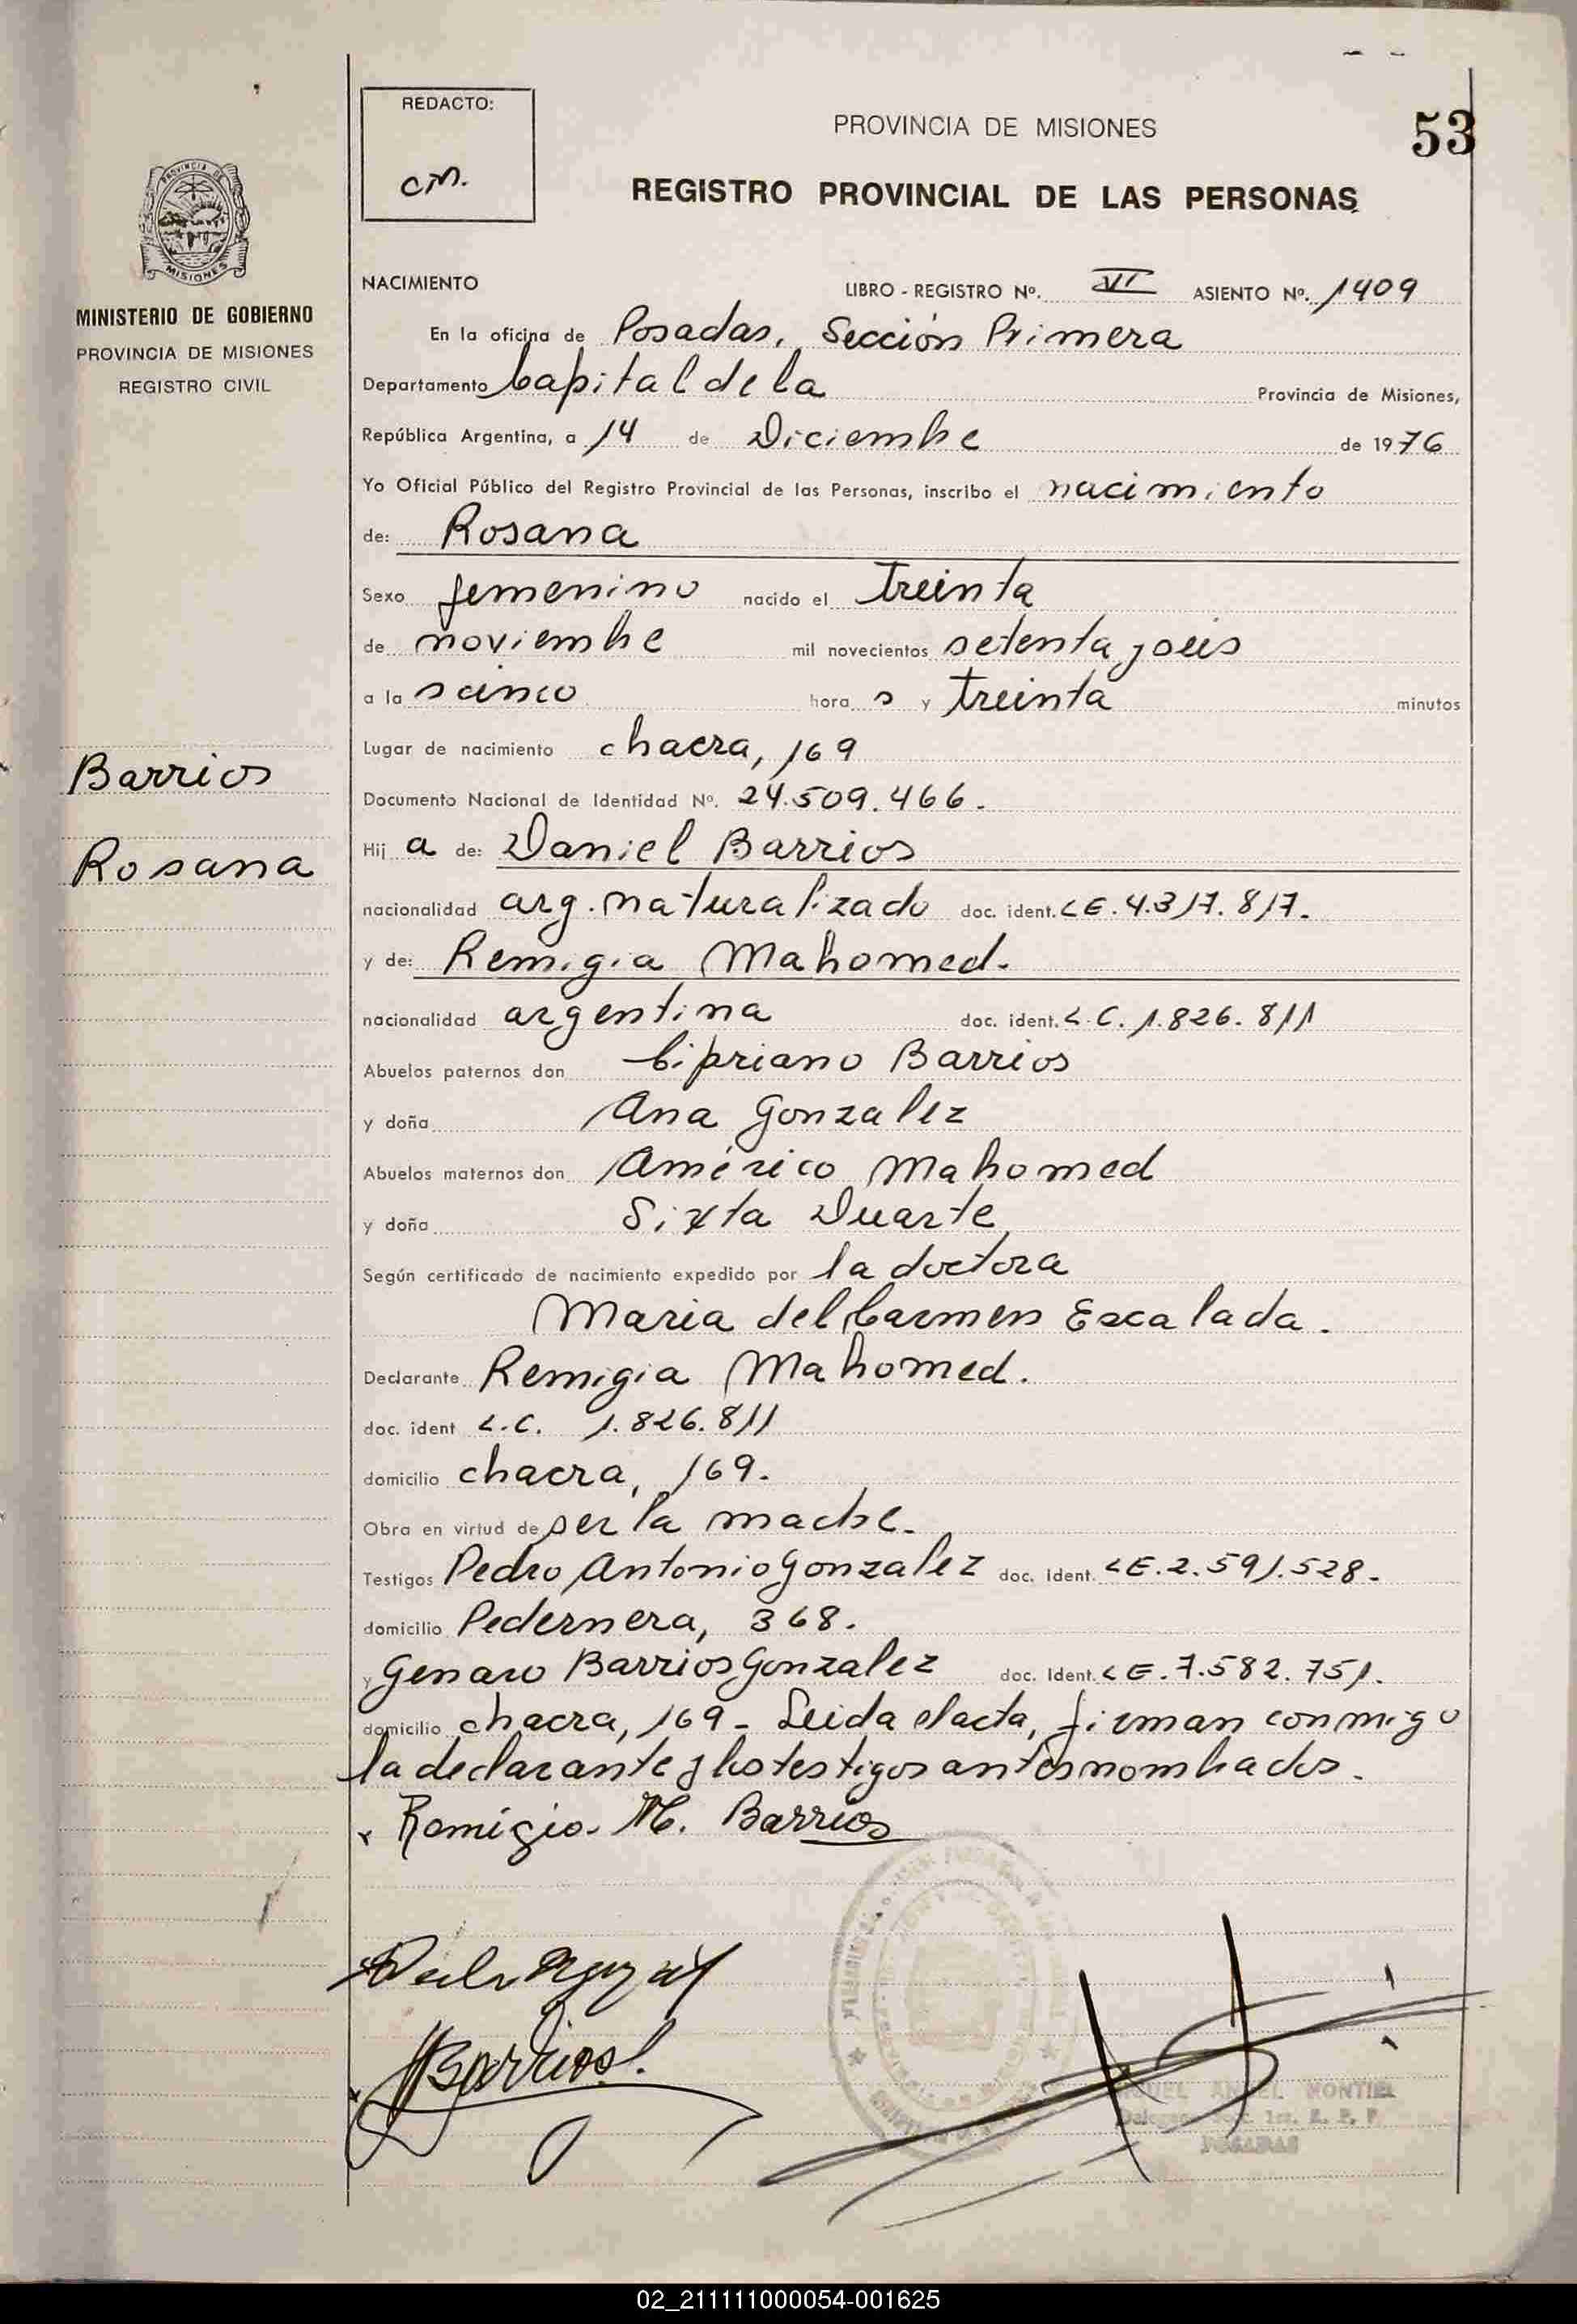 53
REDACTO:
CM.
PROVINCIA DE MISIONES
REGISTRO PROVINCIAL DE LAS PERSONAS
PROVINCIA DE
MISIONES
MINISTERIO DE GOBIERNO
PROVINCIA DE MISIONES
REGISTRO CIVIL
NACIMIENTO LIBRO - REGISTRO Nº. VI ASIENTO Nº. 1409
En la oficina de Posadas, Sección Primera
Departamento Capital de la Provincia de Misiones,
República Argentina, a 14 de Diciembre de 1976
Yo Oficial Público del Registro Provincial de las Personas, inscribo el nacimiento
de: Rosana
Sexo femenino nacido el treinta
de noviembre mil novecientos setenta y seis
a la s cinco hora s y treinta minutos
Lugar de nacimiento chacra, 169
Barrios
Documento Nacional de Identidad Nº. 24.509.466.
Hij a de: Daniel Barrios
Rosana
nacionalidad arg. naturalizado doc. ident. L E. 4.317.817.
y de: Remigia Mahomed.
nacionalidad argentina doc. ident. L. C. 1.826.811
Abuelos paternos don Cipriano Barrios
y doña Ana Gonzalez
Abuelos maternos don Américo Mahomed
y doña Sixta Duarte
Según certificado de nacimiento expedido por la doctora
Maria del Carmen Escalada.
Declarante Remigia Mahomed.
doc. ident L.C. 1.826.811
domicilio chacra, 169.
Obra en virtud de ser la madre.
Testigos Pedro Antonio Gonzalez doc. Ident. L E. 2.591.528.
domicilio Pedernera, 368.
y Genaro Barrios Gonzalez doc. Ident. L E. 7.582.751.
domicilio chacra, 169 - Leida el acta, firman conmigo
la declarante y los testigos antes nombrados.
x Remigia M. Barrios
Barrios
ANGEL MONTIEL
POSADAS
02_211111000054-001625